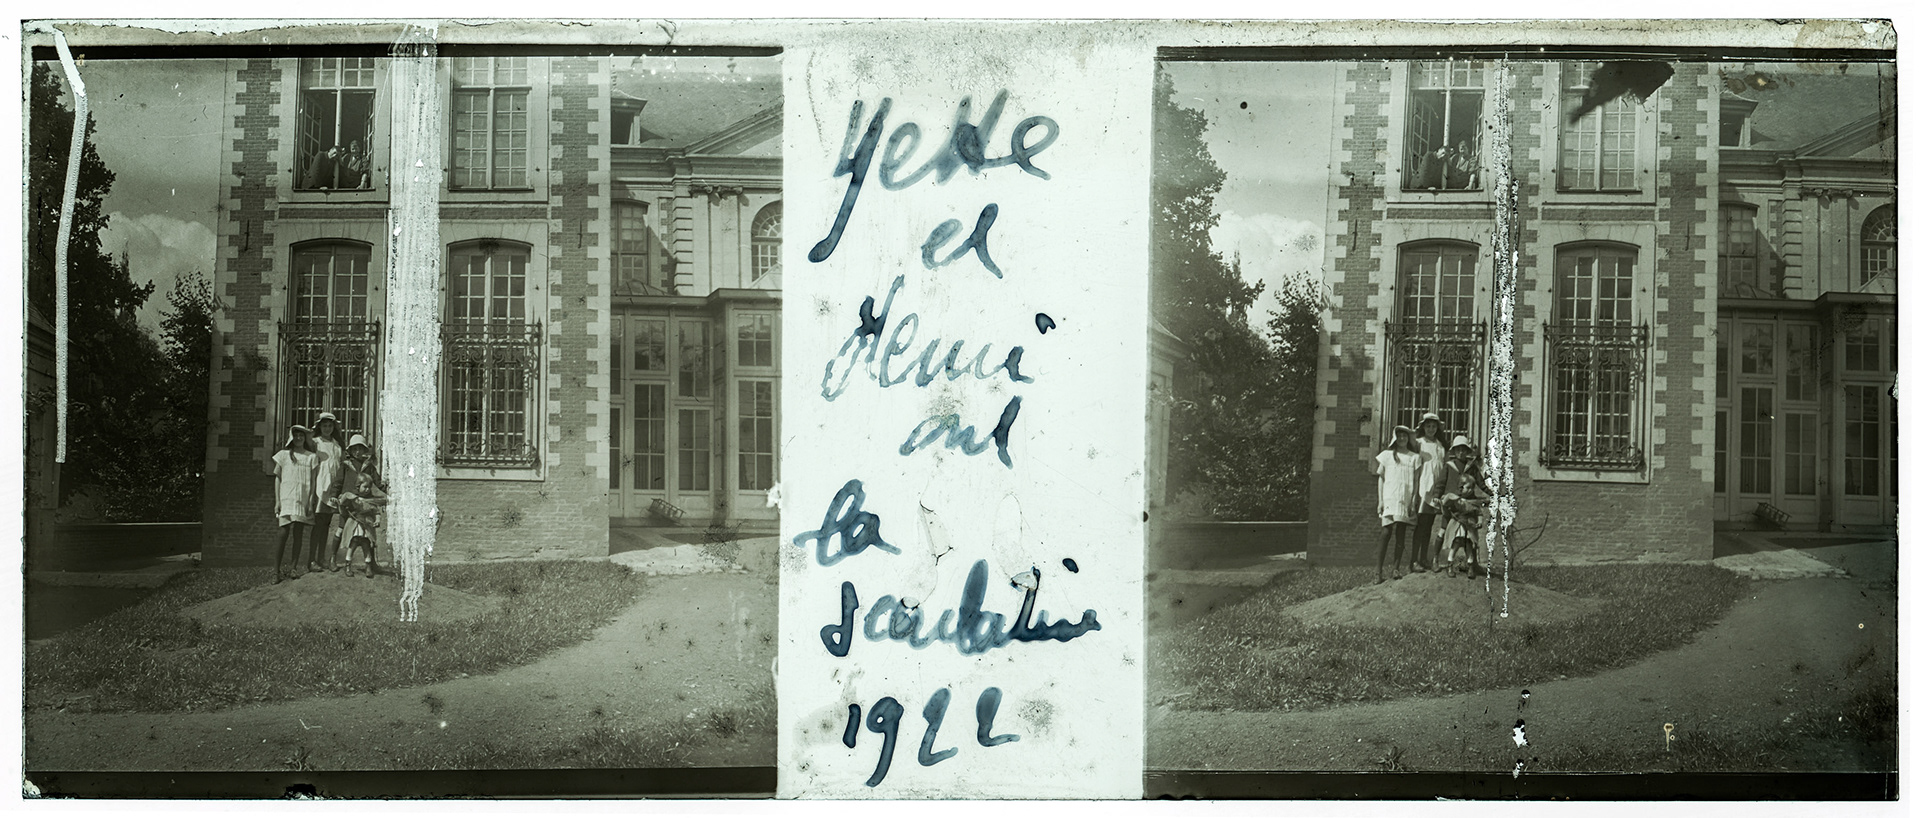 Yette
et
Henri
ont
la
scarlatine
1922